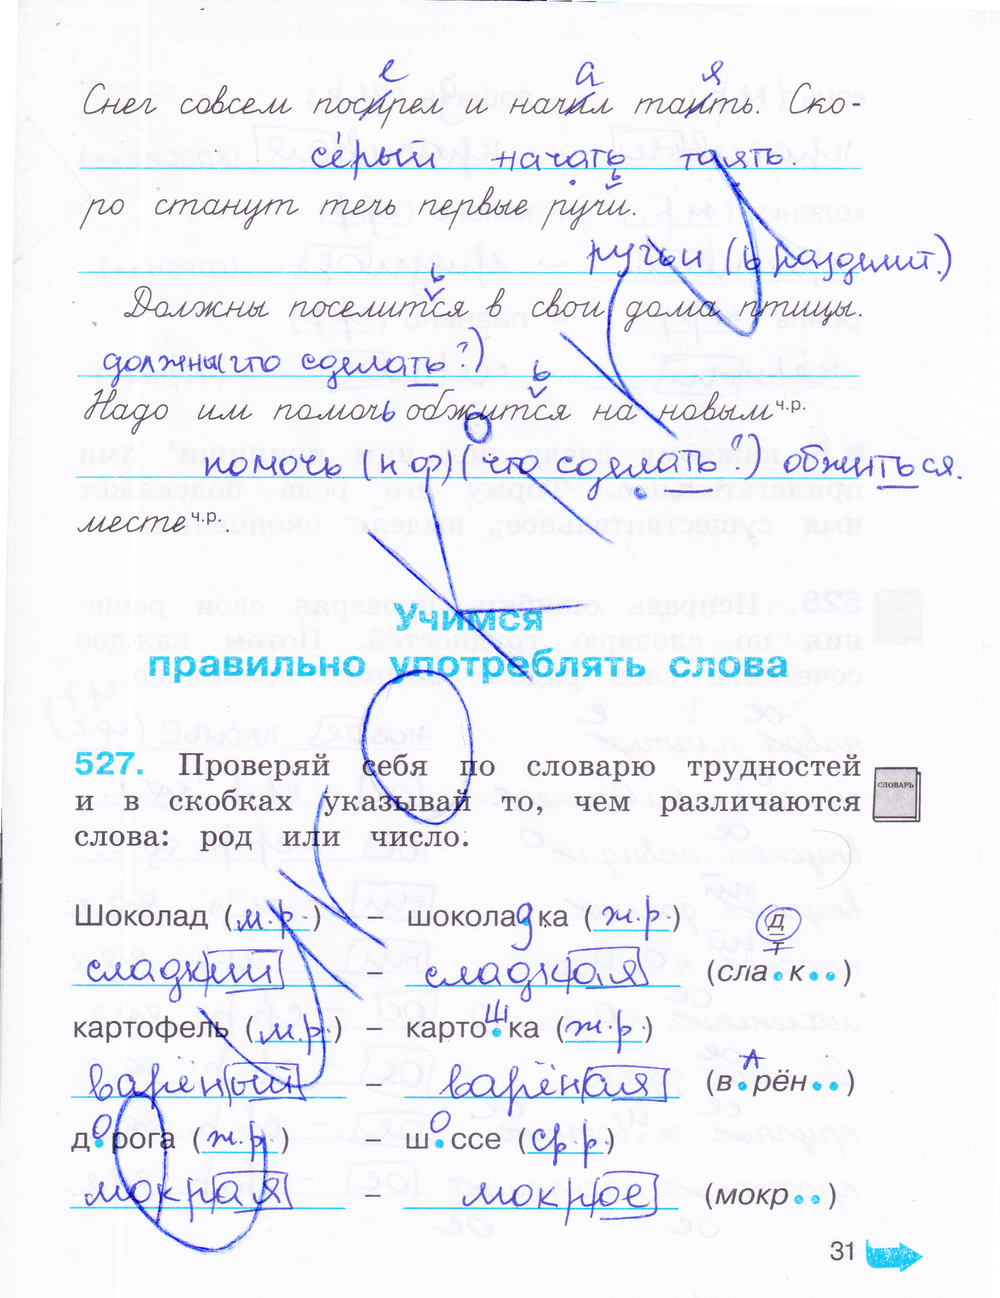 е а я
Снег совсем посирел и начил таить. Ско-
серый начать таять.
ро станут течь первые ручи.
ь
ручьи (ь разделит.)
ь
Должны поселится в свои дома птицы.
должны (что сделать?)
ь
Надо им помочь обжится на новым ч.р.
помочь (н.ф) (что сделать?) обжиться.
месте ч.р.
Учимся
правильно употреблять слова
527. Проверяй себя по словарю трудностей
и в скобках указывай то, чем различаются
слова: род или число.
СЛОВАРЬ
Шоколад (м.р.) – шоколадка (ж.р.)
д
т
сладкий – сладкая (сла.к..)
картофель (м.р.) – картошка (ж.р.)
варёный – варёная (варён..)
дорога (ж.р.) – шоссе (ср.р.)
мокрая – мокрое (мокр..)
31